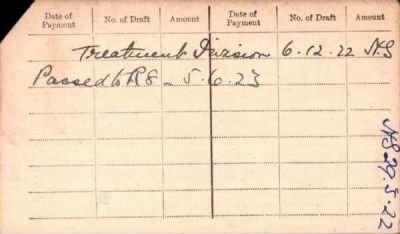 Date of Payment No. of Draft Amount Date of Payment No. of Draft Amount
Treatment Division 6.12.22 N.S
Passed to R8 - 5.6.23
NS 29.5.22